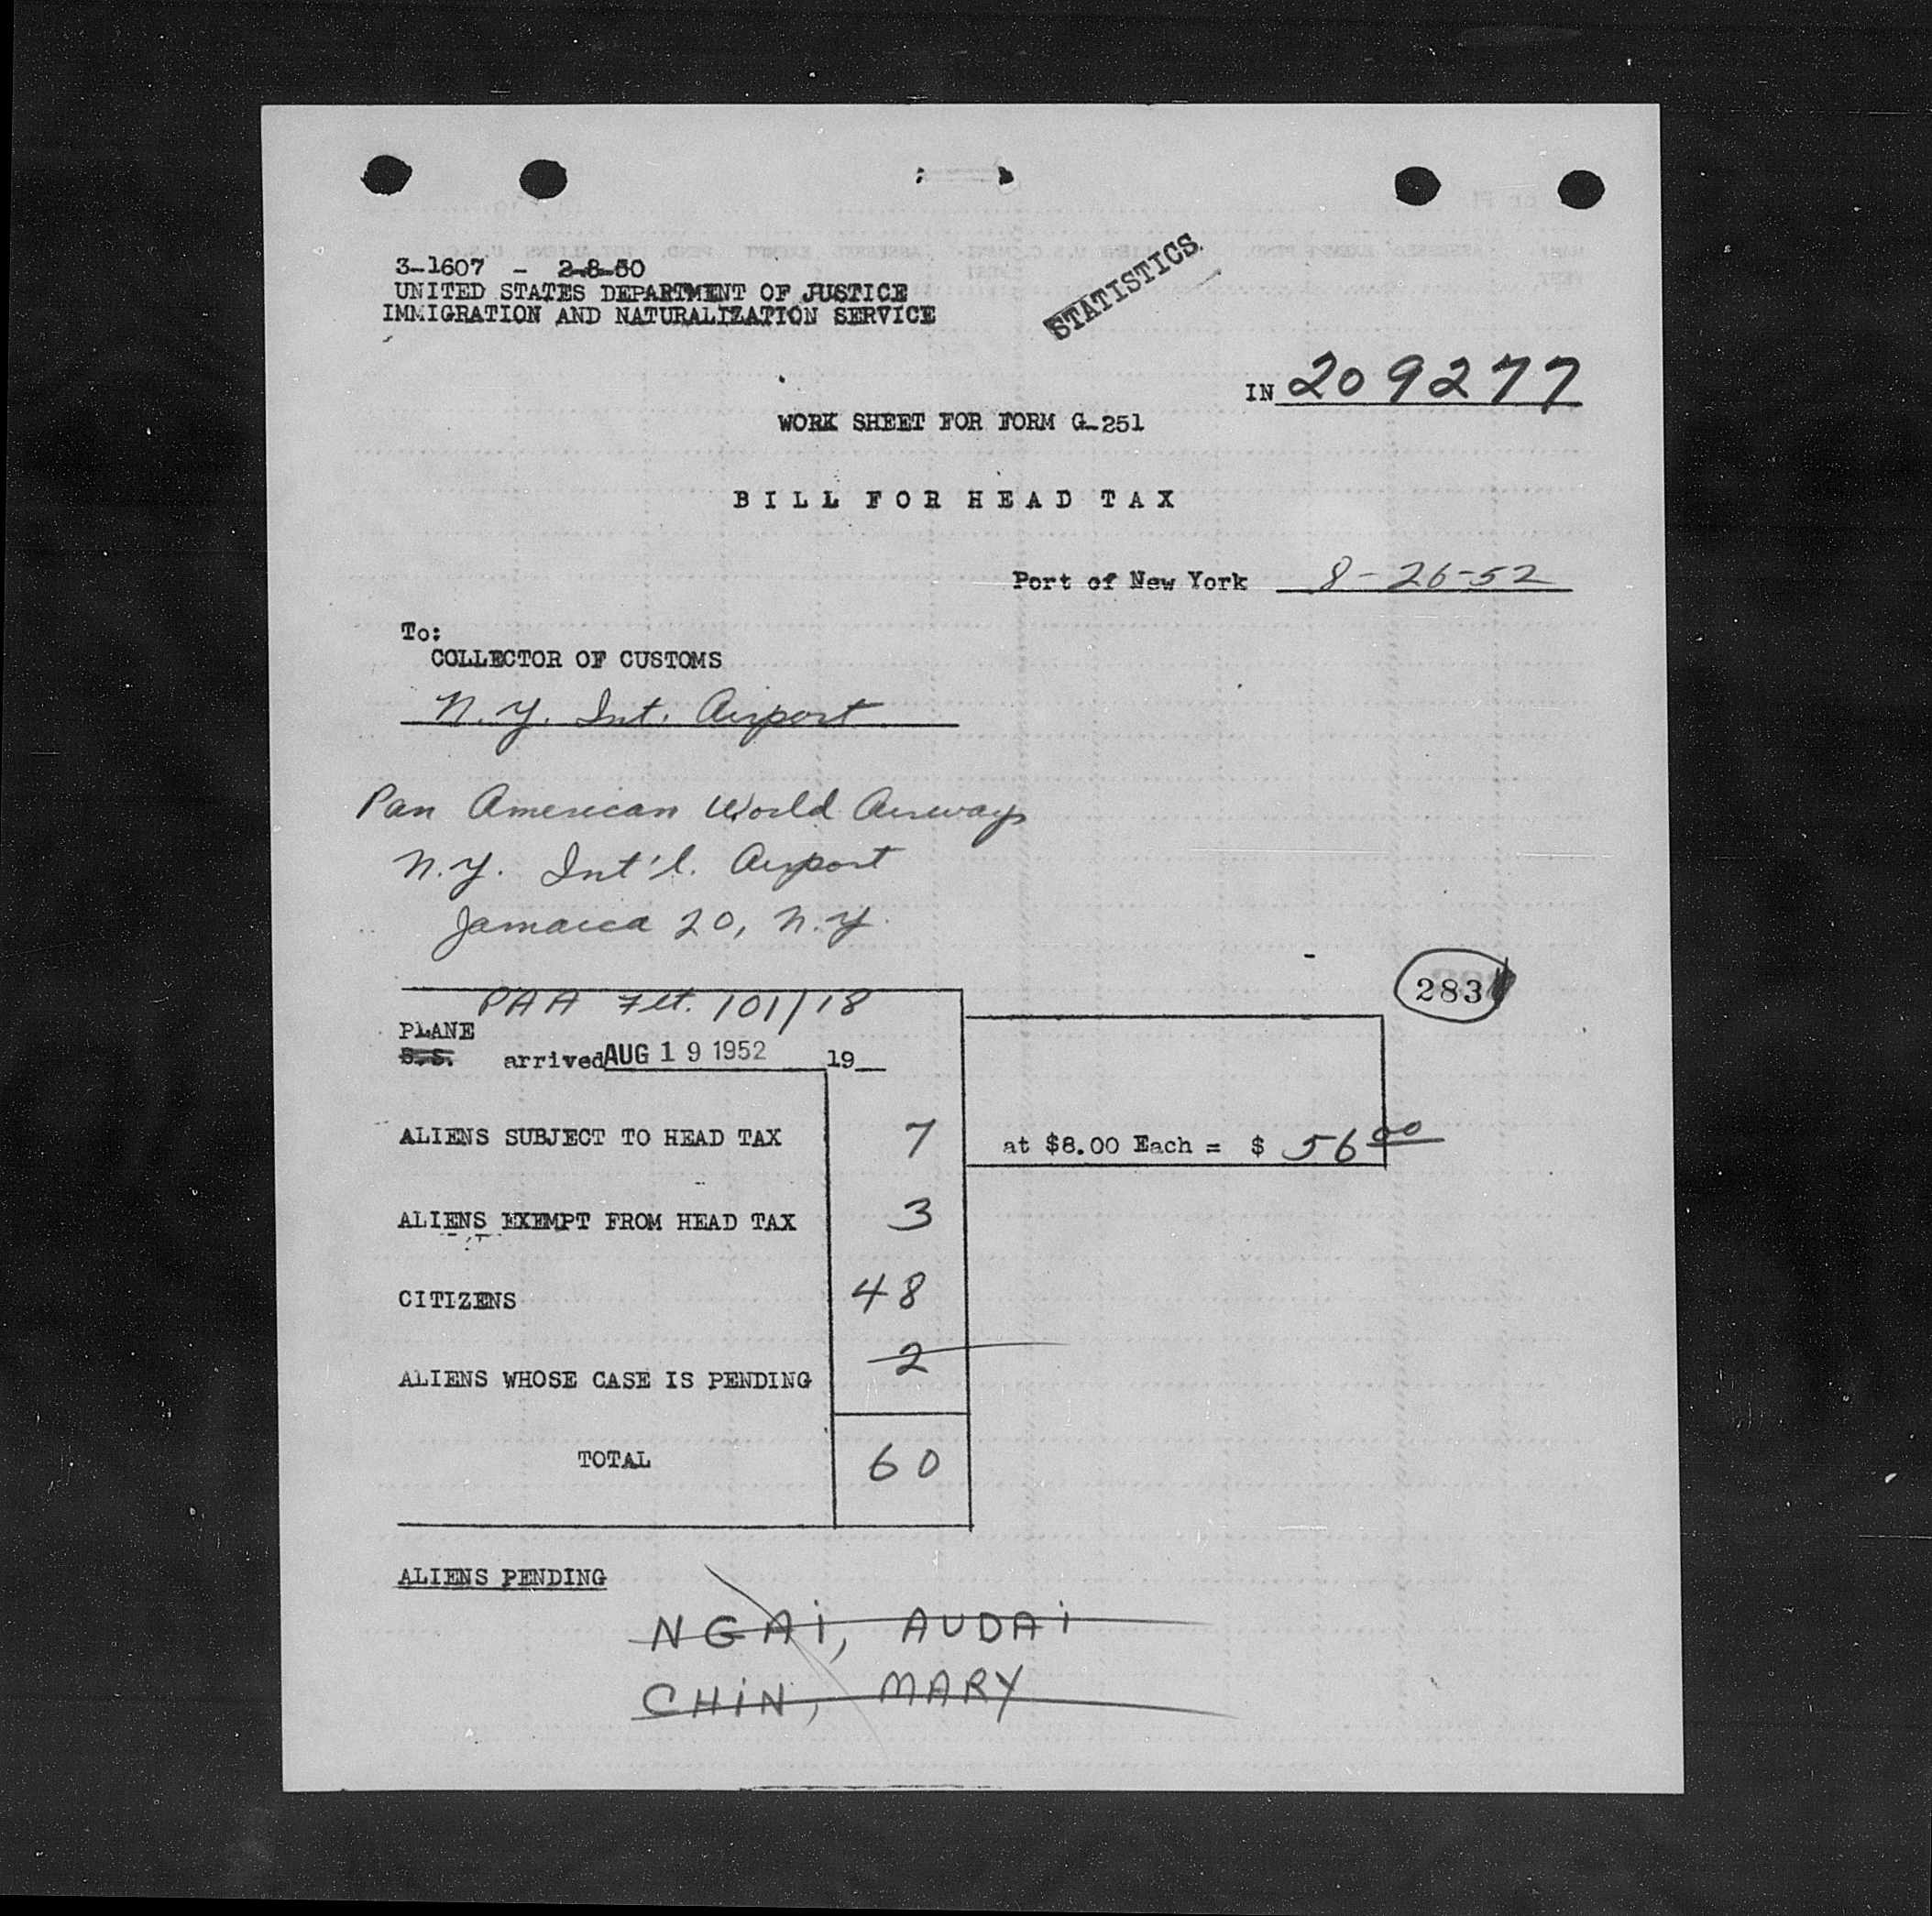 3-1607 - 2-8-50
UNITED STATES DEPARTMENT OF JUSTICE
IMMIGRATION AND NATURALIZATION SERVICE
STATISTICS
IN 209277
WORK SHEET FOR FORM G-251
BILL FOR HEAD TAX
Port of New York 8-26-52
To:
COLLECTOR OF CUSTOMS
N.Y. Int. Airport
Pan American World Airways
N.Y. Int'l. Airport
Jamaica 20, N.Y.
283
PAA Flt. 101/18
PLANE
S.S. arrived AUG 19 1952 19__
ALIENS SUBJECT TO HEAD TAX 7 at $8.00 Each = $ 56 00
ALIENS EXEMPT FROM HEAD TAX 3
CITIZENS 48
ALIENS WHOSE CASE IS PENDING 2
TOTAL 60
ALIENS PENDING
NGAi, AUDAi
CHiN, MARY